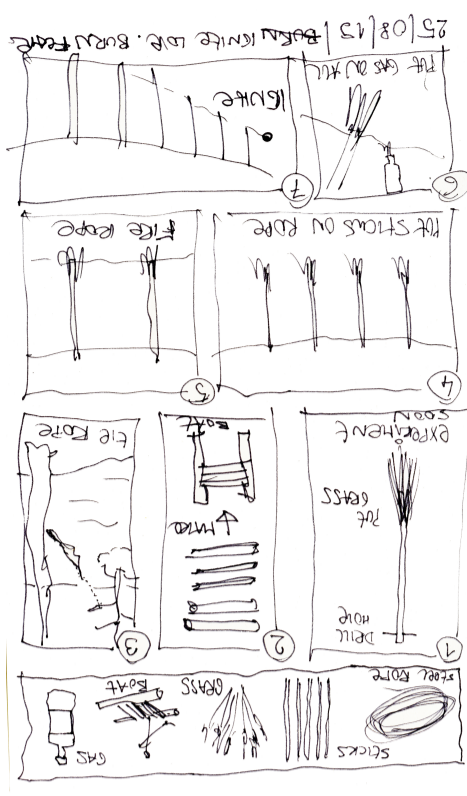 STEEL ROPE
STICKS
GRASS
BOAT
GAS
1
DRILL HOLE
PUT GRASS
EXPERIMENT
SOON
2
BOAT
3
tiE ROPE
4
PUT STICKS ON ROPE
5
FIRE ROPE
6
PUT GAS ON ALL
7
IGNITE
25/08/13 | BURN IGNITE LOVE. BURN FEAR.